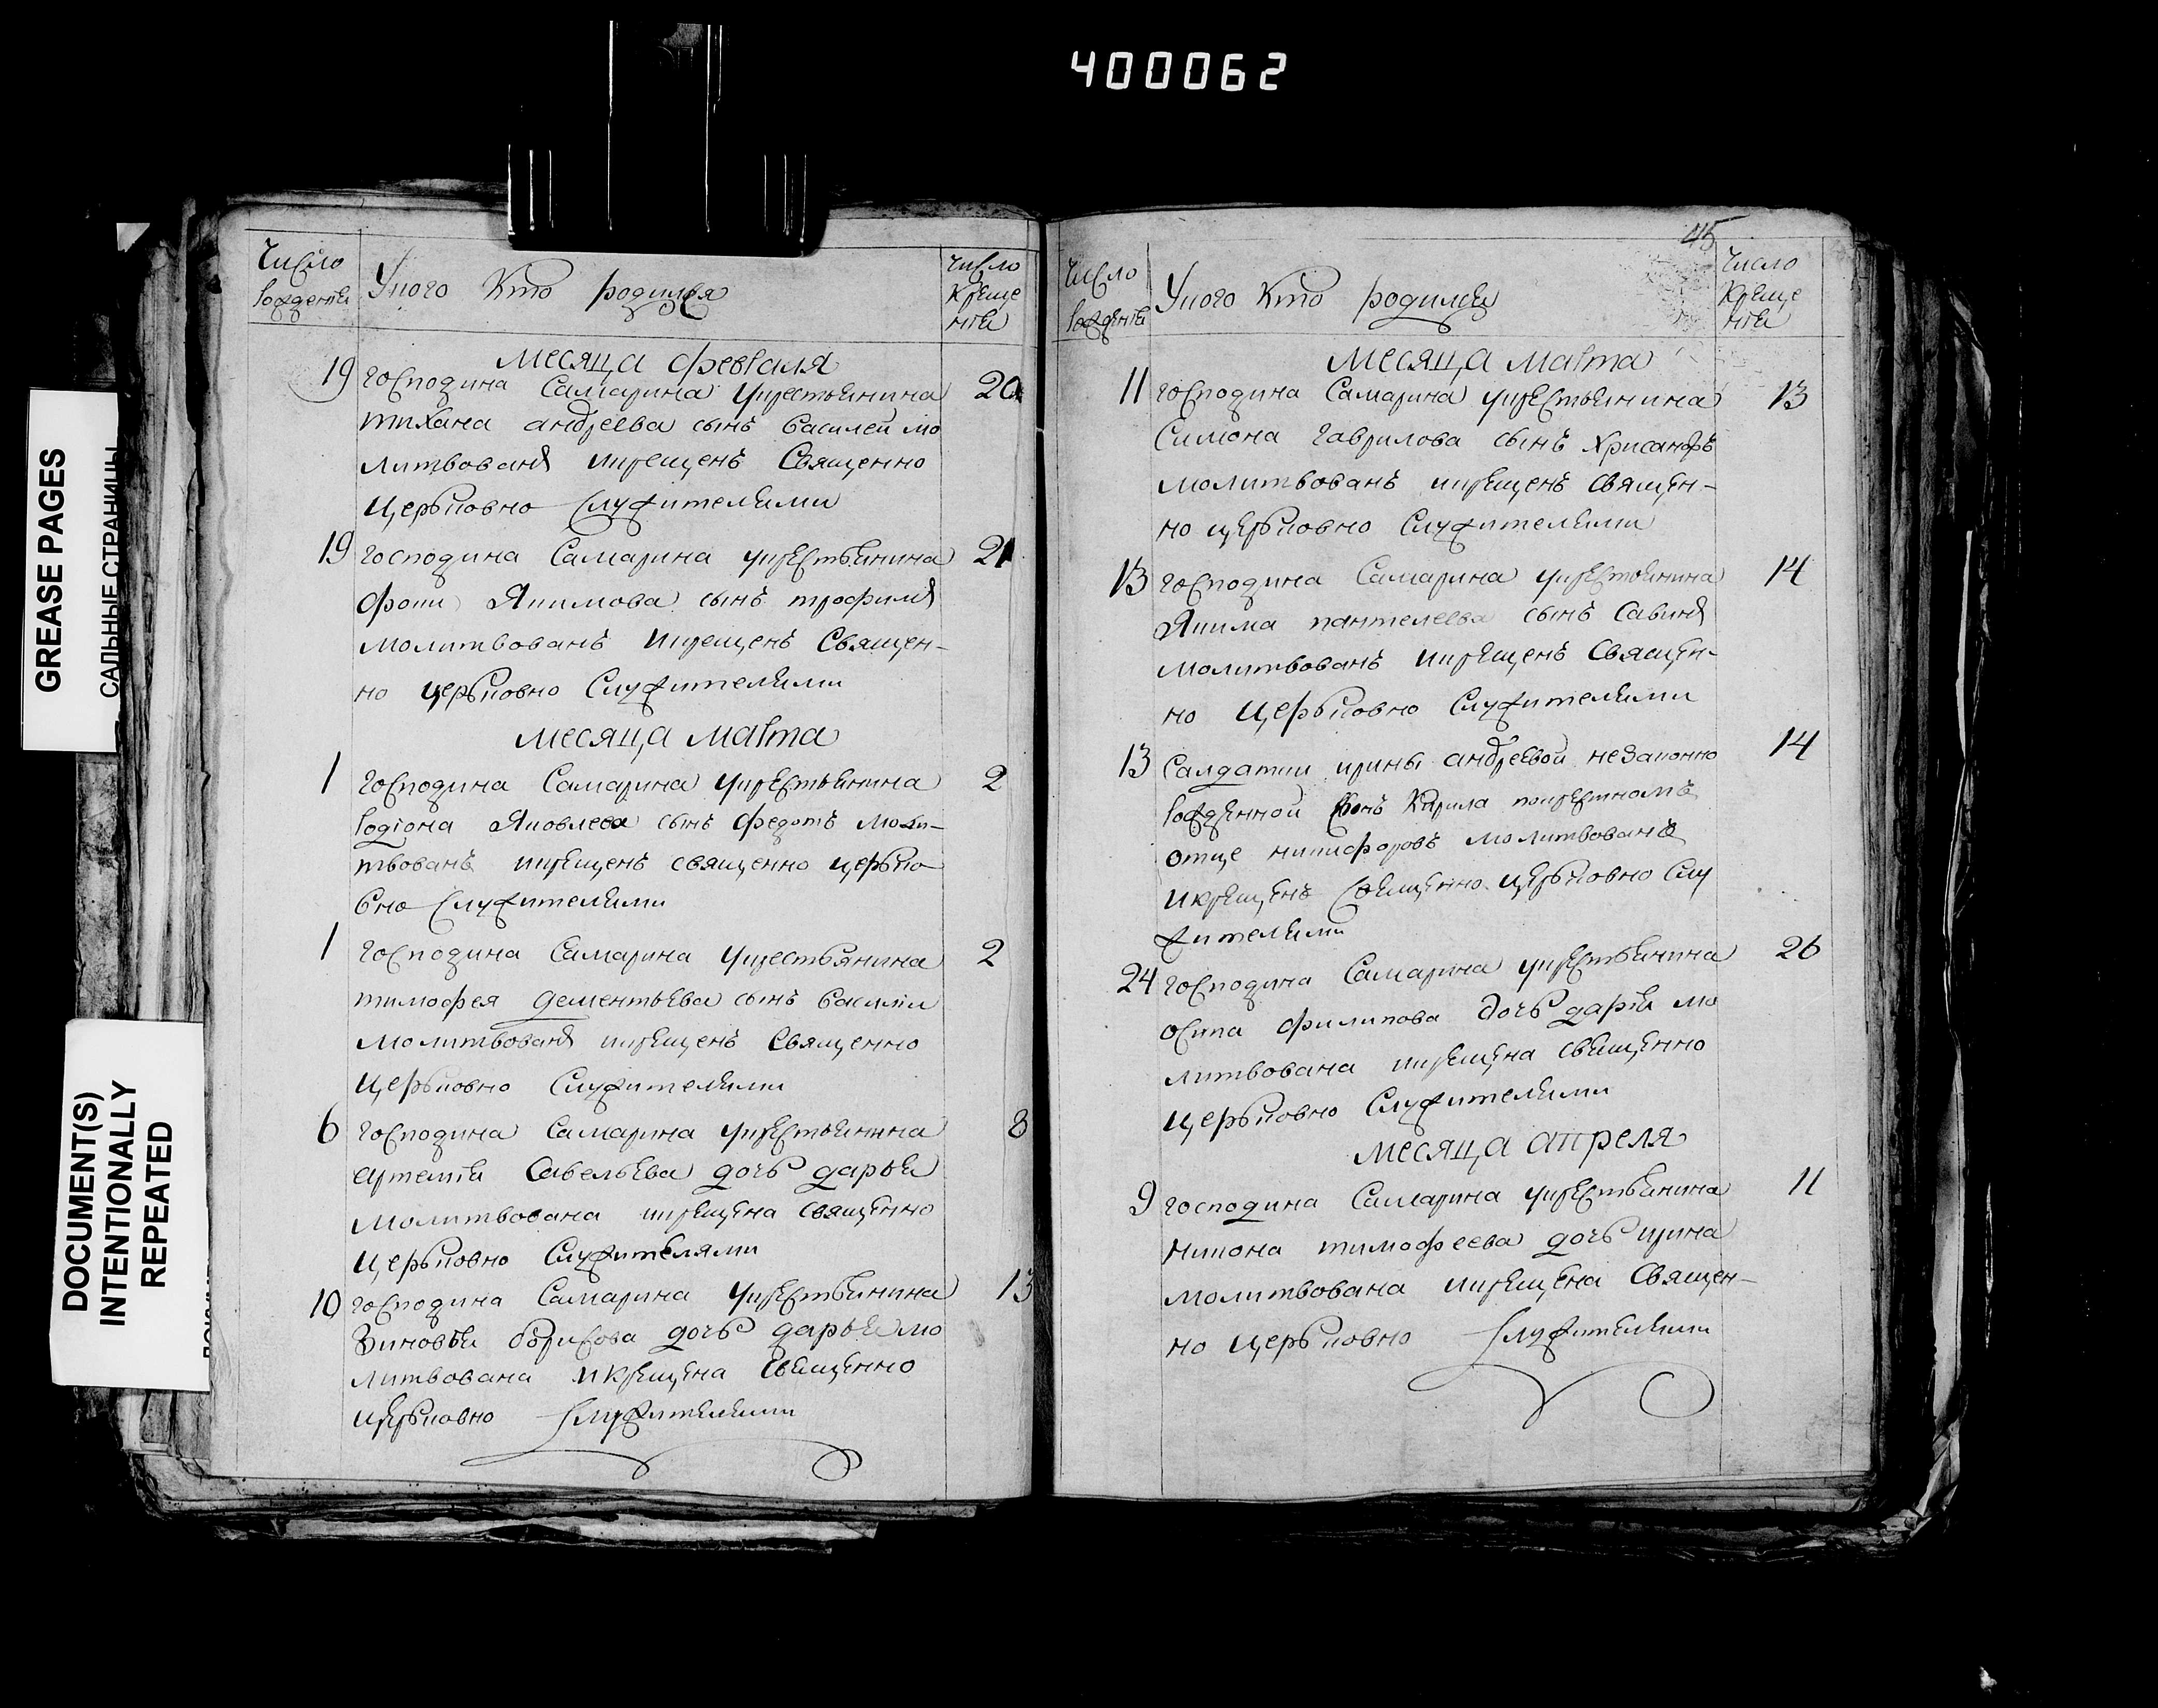 400062
GREASE PAGES
САЛЬНЫЕ СТРАНИЦЫ
DOCUMENT(S)
INTENTIONALLY
REPEATED
Число
рожденїя
Укого Кто родился
Число
Креще
нїя
месяца февраля
19 господина Самарина укрестьянина 20
тихана андреева сынъ василей мо
литвованъ икрещенъ Священно
церьковно Служителями
19 господина Самарина укрестьянина 21
фоки Якимова сынъ трофимъ
молитвованъ икрещенъ Священ-
но церьковно Служителями
месяца марта
1 господина Самарина укрестьянина 2
родїона Яковлева сынъ федотъ моли-
твованъ икрещенъ священно церько
вно Служителями
1 господина Самарина укрестьянина 2
тимофея дементьева сынъ василїи
молитвованъ икрещенъ Священно
церьковно Служителями
6 господина Самарина укрестьянина 8
артемїя Савельева дочь дарья
молитвована икрещена священно
церьковно Служителями
10 господина Самарина укрестьянина 13
Зиновья борисова дочь дарья мо
литвована икрещена Священно
церьковно Служителями
45
Число
рожденїя
Укого Кто родился
Число
Креще
нїя
месяца марта
11 господина Самарина укрестьянина 13
Симона гаврилова сынъ хрисанфъ
молитвованъ икрещенъ Священ-
но церьковно Служителями
13 господина Самарина укрестьянина 14
Якима пантелеева сынъ Савинъ
молитвованъ икрещенъ Священ-
но церьковно Служителями
13 Салдатки ирины андреевой незаконно 14
рожденной сынъ Кирила покрестнамъ
отце никифоровъ молитвованъ
икрещенъ Священно церьковно Слу
жителями
24 господина Самарина укрестьянина 26
осипа филипова дочь дарья мо
литвована икрещена священно
церьковно Служителями
месяца апреля
9 господина Самарина укрестьянина 11
никона тимофеева дочь ирина
молитвована икрещена Священ-
но церьковно Служителями